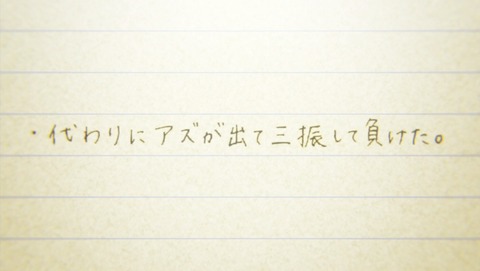 ・代わりにアズが出て三振して負けた。